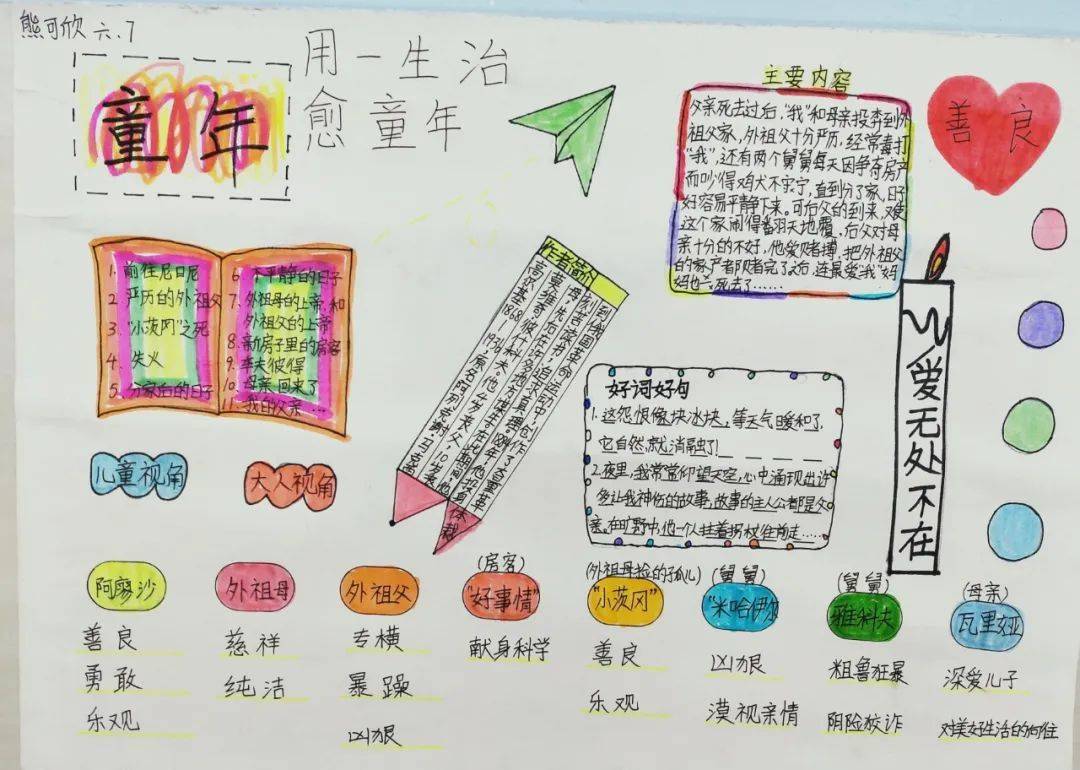 熊可欣 六.7
童年
用一生治
愈童年
主要内容
父亲死去过后,“我”和母亲投奔到外
祖父家,外祖父十分严历,经常毒打
“我”,还有两个舅舅每天因争夺房产
而吵得鸡犬不宁,直到分了家,日子
好容易平静下来。可后父的到来,难
这个家闹得翻天地覆,后父对母
亲十分的不好,他爱赌搏,把外祖父
的家产都赌完了
死去了……
善良
1. 前往尼日尼
2. 严历的外祖父
3. “小茨冈”之死
4. 失火
5. 分家后的日子
6. 不平静的日子
7. 外祖母的上帝,和
外祖父的上帝
8. 新房子里的房客
9. 李夫彼得
10. 母亲回来了
11. 我的父亲…
儿童视角
大人视角
作者简介
高尔基1868—1936
好词好句
1. 这怨恨像块冰块,等天气暖和了,
它自然就消融了!
2. 夜里,我常常仰望天空,心中涌现出许
多让我神伤的故事,故事的主人公都是父
亲。在旷野中,他一个人拄着拐杖往前走……
爱无处不在
阿廖沙
善良
勇敢
乐观
外祖母
慈祥
纯洁
外祖父
专横
暴躁
凶狠
(房客)
“好事情”
献身科学
(外祖母捡的孤儿)
“小茨冈”
善良
乐观
(舅舅)
“米哈伊尔
凶狠
漠视亲情
(舅舅)
雅科夫
粗鲁狂暴
阴险狡诈
(母亲)
瓦里娅
深爱儿子
对美好生活的向往